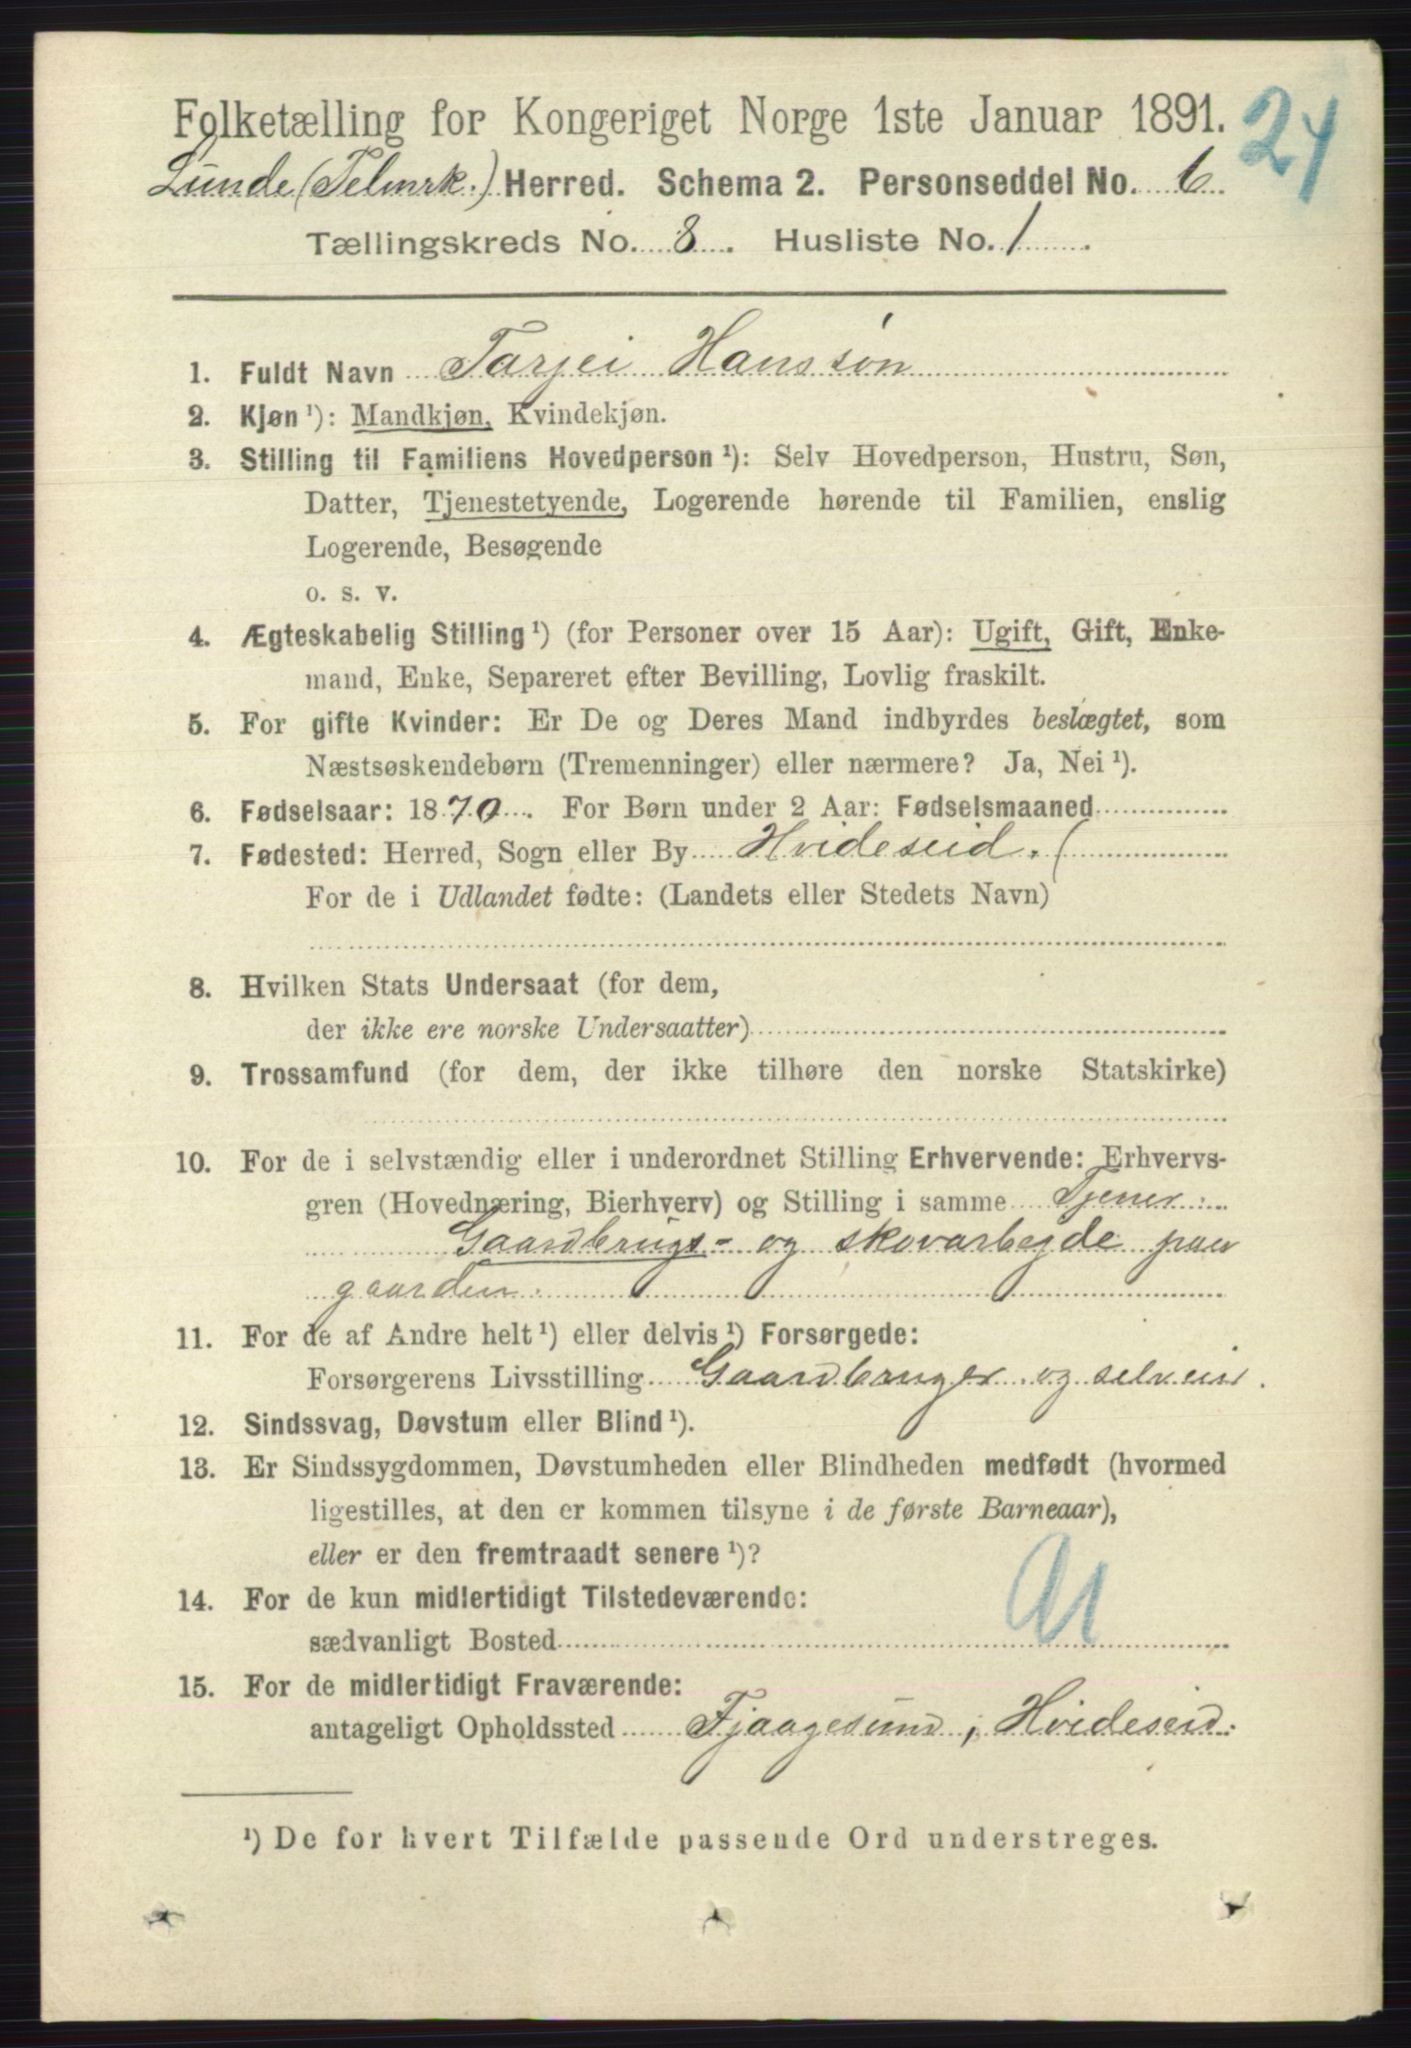 Folketælling for Kongeriget Norge 1ste Januar 1891.
24
Lunde (Telmrk.) Herred. Schema 2. Personseddel No. 6.
Tællingskreds No. 8. Husliste No. 1.
1. Fuldt Navn Tarjei Hanssøn
2. Kjøn ¹): Mandkjøn, Kvindekjøn.
3. Stilling til Familiens Hovedperson ¹): Selv Hovedperson, Hustru, Søn,
Datter, Tjenestetyende, Logerende hørende til Familien, enslig
Logerende, Besøgende
o. s. v.
4. Ægteskabelig Stilling ¹) (for Personer over 15 Aar): Ugift, Gift, Enke-
mand, Enke, Separeret efter Bevilling, Lovlig fraskilt.
5. For gifte Kvinder: Er De og Deres Mand indbyrdes beslægtet, som
Næstsøskendebørn (Tremenninger) eller nærmere? Ja, Nei ¹).
6. Fødselsaar: 1870. For Børn under 2 Aar: Fødselsmaaned
7. Fødested: Herred, Sogn eller By Hvideseid. (
For de i Udlandet fødte: (Landets eller Stedets Navn)
8. Hvilken Stats Undersaat (for dem,
der ikke ere norske Undersaatter)
9. Trossamfund (for dem, der ikke tilhøre den norske Statskirke)
10. For de i selvstændig eller i underordnet Stilling Erhvervende: Erhvervs-
gren (Hovednæring, Bierhverv) og Stilling i samme Tjener:
Gaardbrugs- og skovarbejde paa
gaarden.
11. For de af Andre helt ¹) eller delvis ¹) Forsørgede:
Forsørgerens Livsstilling Gaardbruger og selveier.
12. Sindssvag, Døvstum eller Blind ¹).
13. Er Sindssygdommen, Døvstumheden eller Blindheden medfødt (hvormed
ligestilles, at den er kommen tilsyne i de første Barneaar),
eller er den fremtraadt senere ¹)?
14. For de kun midlertidigt Tilstedeværende:
sædvanligt Bosted
15. For de midlertidigt Fraværende:
antageligt Opholdssted Fjaagesund, Hvideseid.
¹) De for hvert Tilfælde passende Ord understreges.